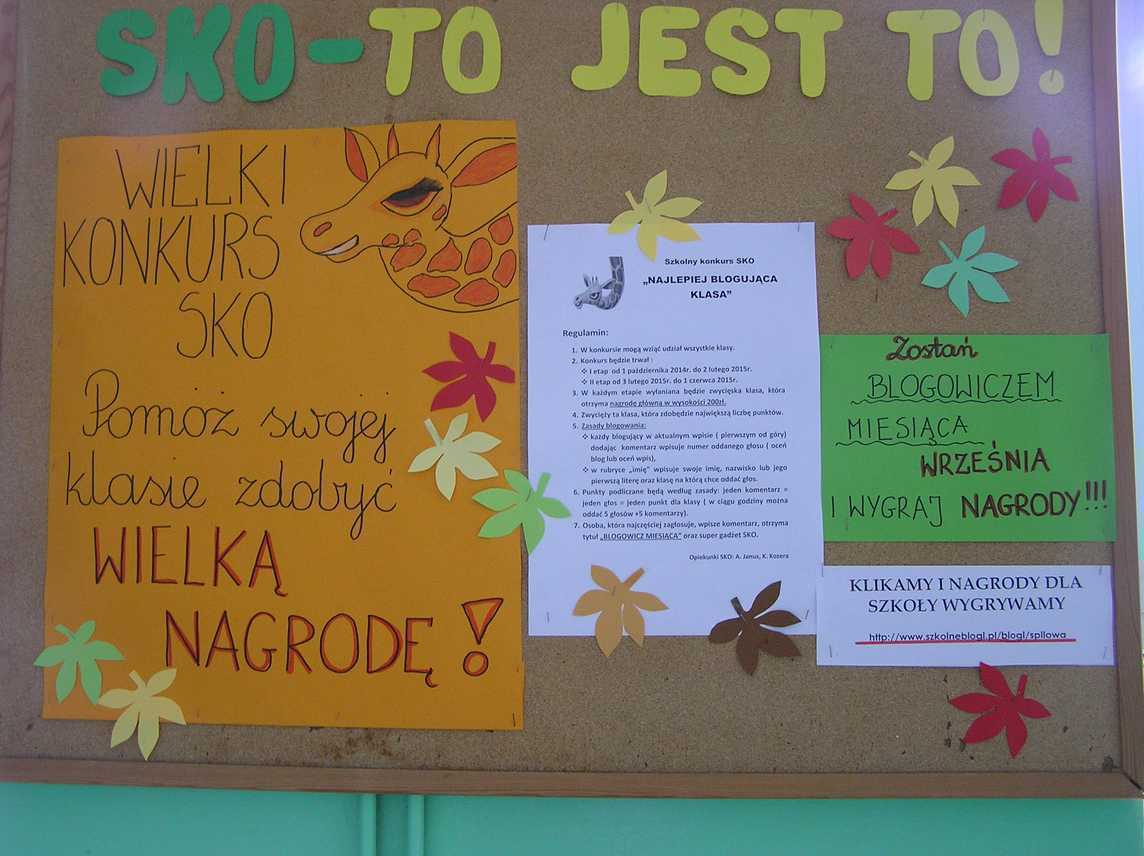 SKO-TO JEST TO!
WIELKI
KONKURS
SKO
Pomóż swojej
klasie zdobyć
WIELKĄ
NAGRODĘ!
Szkolny konkurs SKO
„NAJLEPIEJ BLOGUJĄCA
KLASA”
Regulamin:
1. W konkursie mogą wziąć udział wszystkie klasy.
2. Konkurs będzie trwał :
❖ I etap od 1 października 2014r. do 2 lutego 2015r.
❖ II etap od 3 lutego 2015r. do 1 czerwca 2015r.
3. W każdym etapie wyłaniana będzie zwycięska klasa, która
otrzyma nagrodę główną w wysokości 200zł.
4. Zwycięży ta klasa, która zdobędzie największą liczbę punktów.
5. Zasady blogowania:
❖ każdy blogujący w aktualnym wpisie ( pierwszym od góry)
dodając komentarz wpisuje numer oddanego głosu ( oceń
blog lub oceń wpis),
❖ w rubryce „imię” wpisuje swoje imię, nazwisko lub jego
pierwszą literę oraz klasę na którą chce oddać głos.
6. Punkty podliczane będą według zasady: jeden komentarz =
jeden głos = jeden punkt dla klasy ( w ciągu godziny można
oddać 5 głosów +5 komentarzy).
7. Osoba, która najczęściej zagłosuje, wpisze komentarz, otrzyma
tytuł „BLOGOWICZ MIESIĄCA” oraz super gadżet SKO.
Opiekunki SKO: A. Janus, K. Kozera
Zostań
BLOGOWICZEM
MIESIĄCA
WRZEŚNIA
I WYGRAJ NAGRODY!!!
KLIKAMY I NAGRODY DLA
SZKOŁY WYGRYWAMY
http://www.szkolneblogi.pl/blogi/spilowa